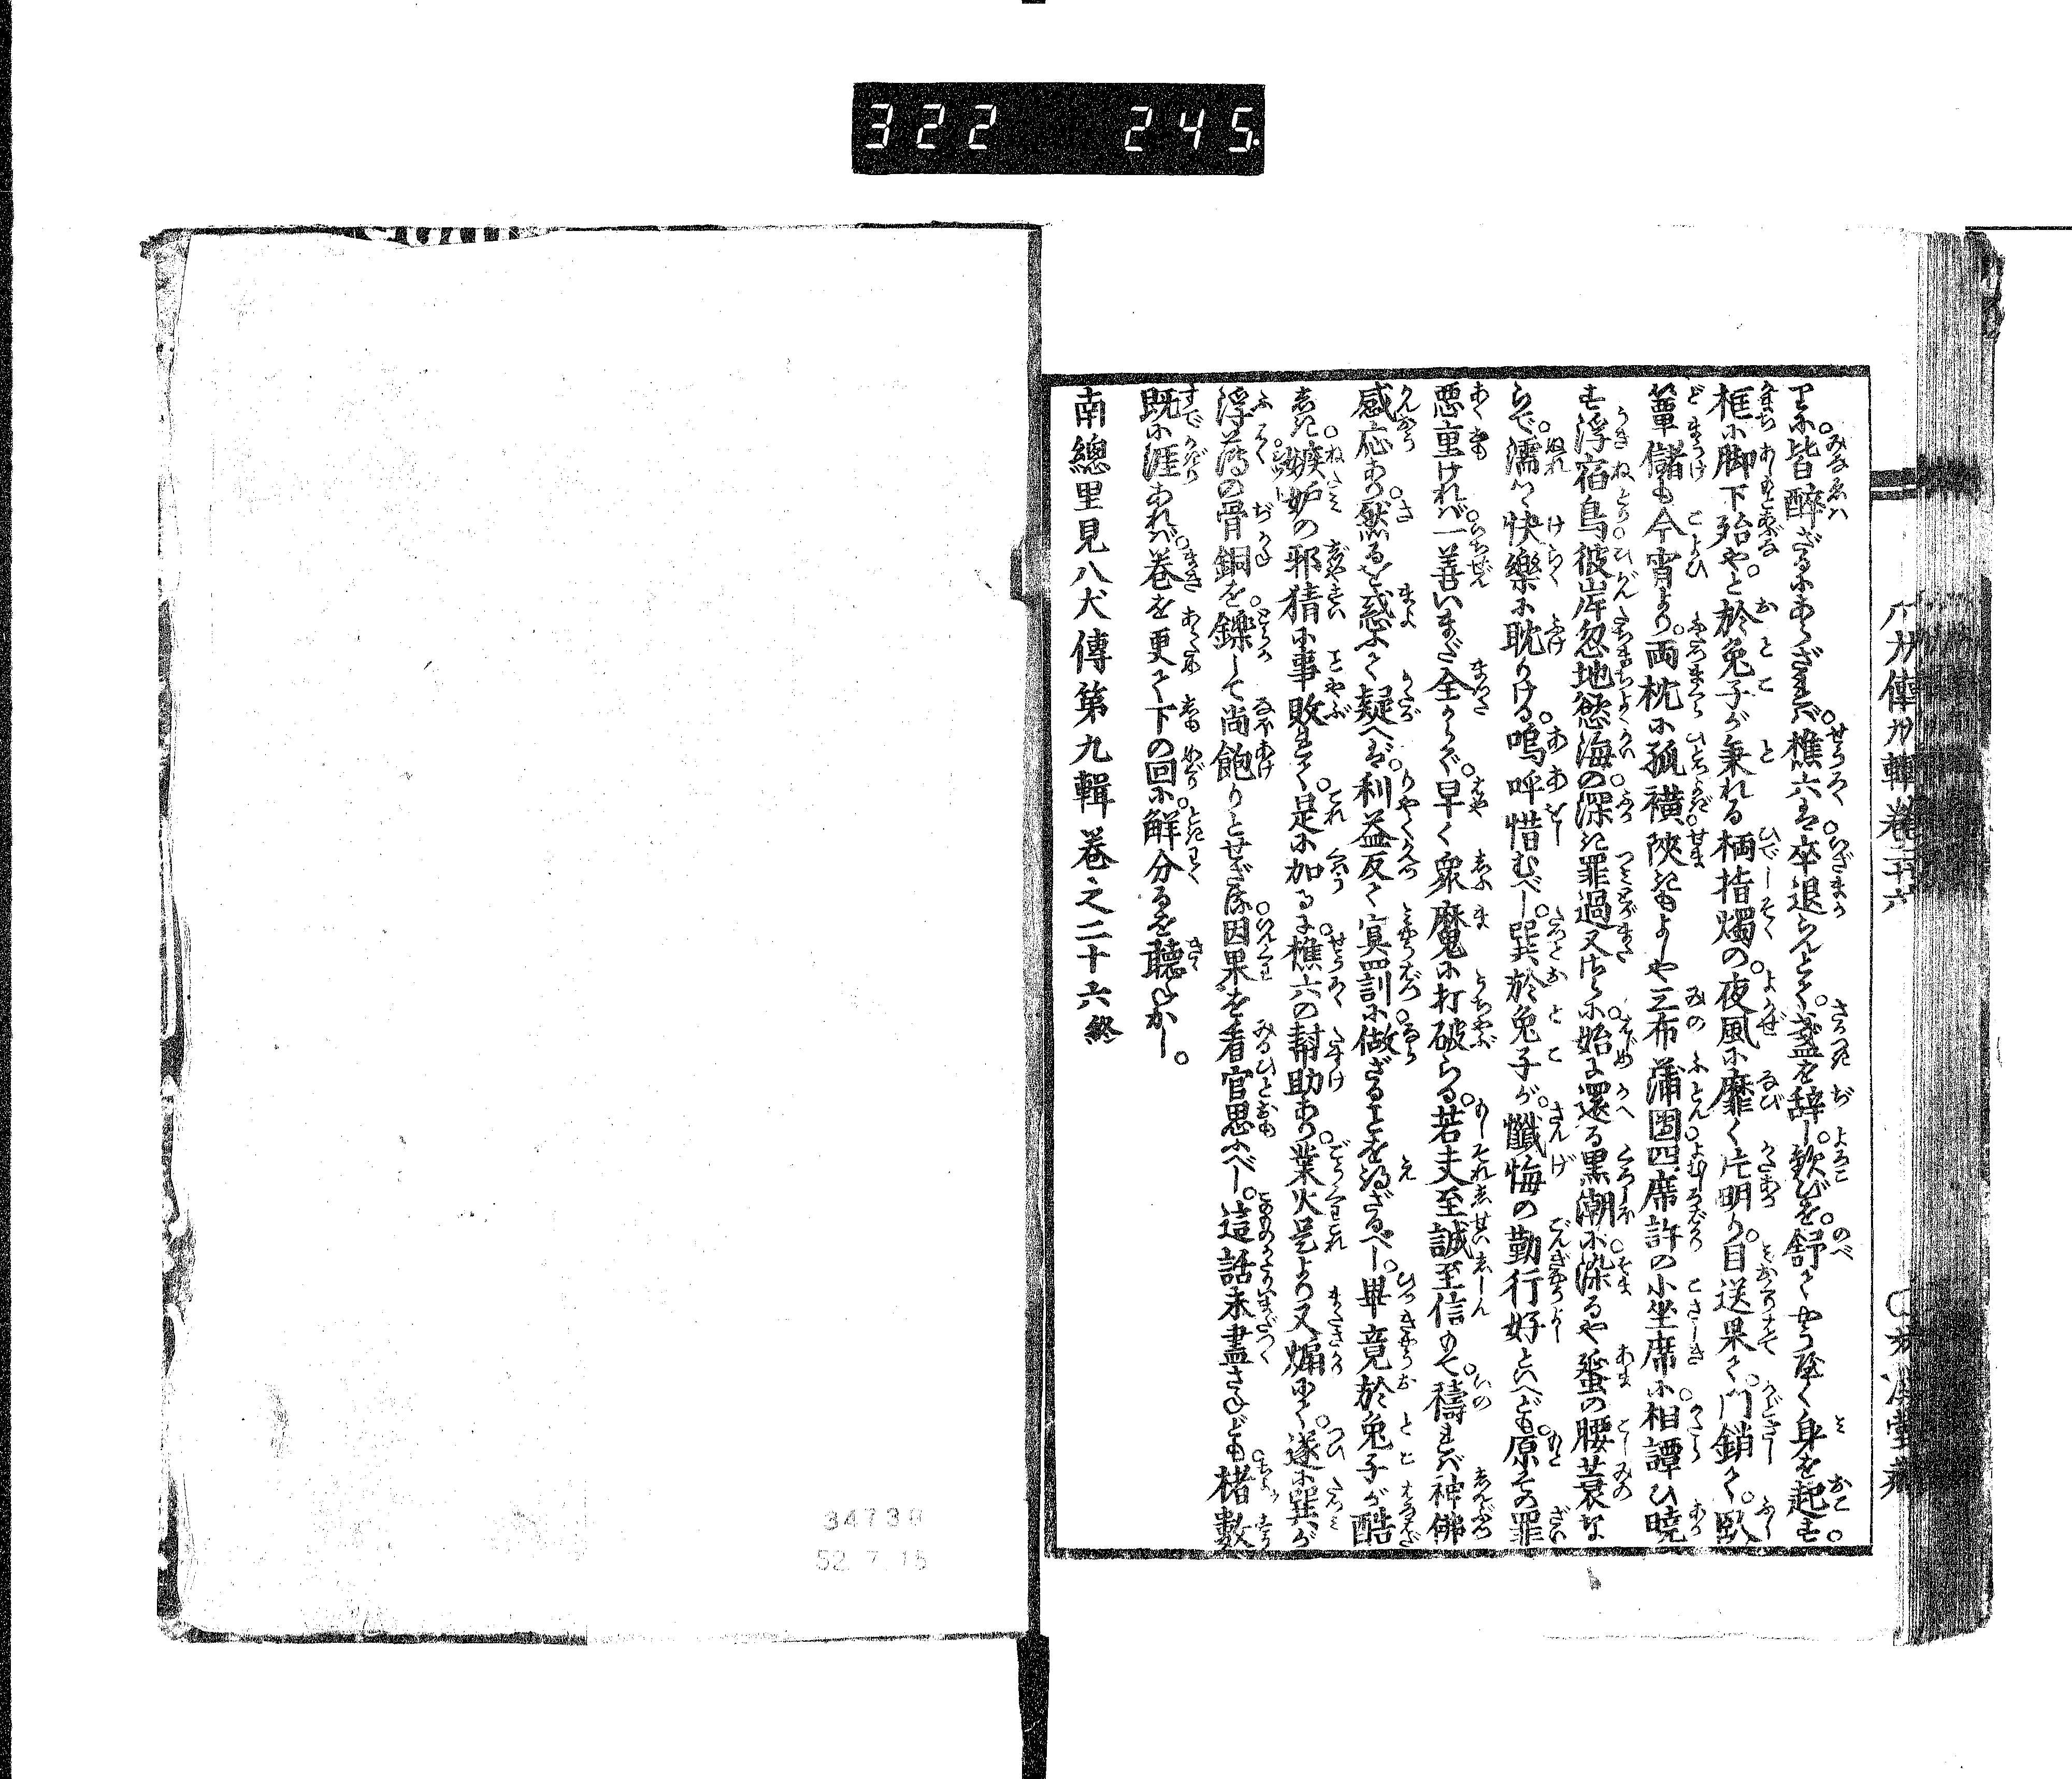 322 245
八犬傳九輯卷二十六
りに皆醉ざるにあらざれば樵六は卒退らんとて盞を辞し歓びを舒てやうやく身を起す
框に脚下殆やと於兎子が秉れる柄指燭の夜風に靡く片明り目送果て門鎖て臥
簟儲も今宵より両枕に孤襖陜きもよしや三布蒲團四席許の小坐席に相譚ひ曉
す浮宿鳥彼岸忽地慾海の深き罪過又さらに始に還る黒潮に染るや蜑の腰蓑な
らで濡つゝ快樂に耽りける嗚呼惜むべし巽於兎子が懺悔の勤行好といへども原その罪
悪重ければ一善いまだ全からず早く衆魔に打破らる若夫至誠至信もて禱れば神佛
感応あり然るを惑ふて疑へば利益反て冥罰に做ざることを得ざるべし畢竟於兎子が酷
しき嫉妒の邪猜に事敗れて是に加るに樵六の幇助あり業火是より又煽にて遂に巽が
浮薄の骨銅を鑠して尚飽りとせざる因果を看官思ふべし這話未盡さゞれども楮數
既に涯あれば巻を更て下の回に解分るを聽ねかし
南總里見八犬傳第九輯卷之二十六終
34730
52.7.15